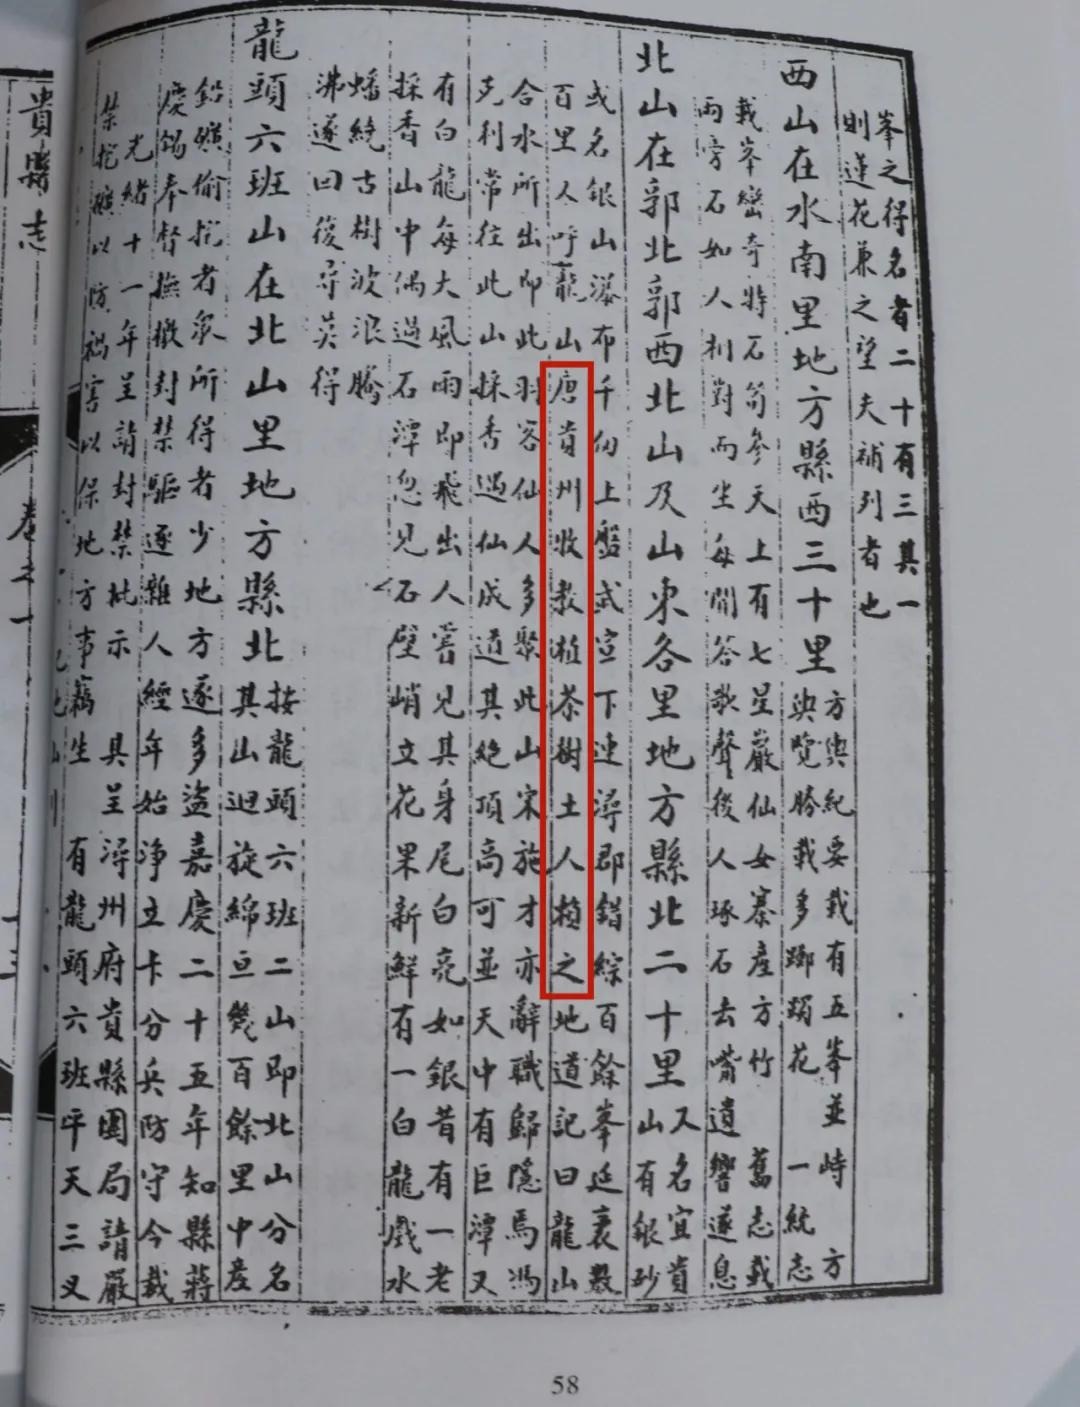 峯之得名者二十有三其一
則蓮花兼之望夫補列者也
西山在水南里地方縣西三十里
方輿紀要載有五峯並峙 方
輿覽勝載多躑躅花 一統志
載峯巒奇特石筍參天上有七星巖仙女寨產方竹 舊志載
兩旁石如人判對而坐每聞答歌聲後人琢石去嘴遺響遂息
北山在郭北郭西北山及山東各里地方縣北二十里
又名宜貴
山有銀砂
或名銀山瀑布千仞上盤武宣下連潯郡錯綜百餘峯延袤數
百里人呼龍山唐貴州收教植茶樹土人賴之地道記曰龍山
合水所出即此羽客仙人多聚此山宋施才亦辭職歸隱焉馮
克利常往此山採香過仙成道其絕頂高可並天中有巨潭又
有白龍每大風雨即飛出人嘗見其身尾白亮如銀昔有一老
採香山中偶過石潭忽見石壁峭立花果新鮮有一白龍戲水
蟠繞古樹波浪騰
沸遂回後尋莫得
龍頭六班山在北山里地方縣北
按龍頭六班二山即北山分名
其山迴旋綿亘幾百餘里中產
鉛礦偷挖者眾所得者少地方遂多盜嘉慶二十五年知縣蔣
慶錫奉督撫檄封禁驅逐雜人經年始淨立卡分兵防守今裁
光緒十一年呈請封禁批示 具呈潯州府貴縣團局請嚴
禁挖礦以防禍害以保地方事竊生 有龍頭六班平天三义
貴縣志
卷之一
十三
58